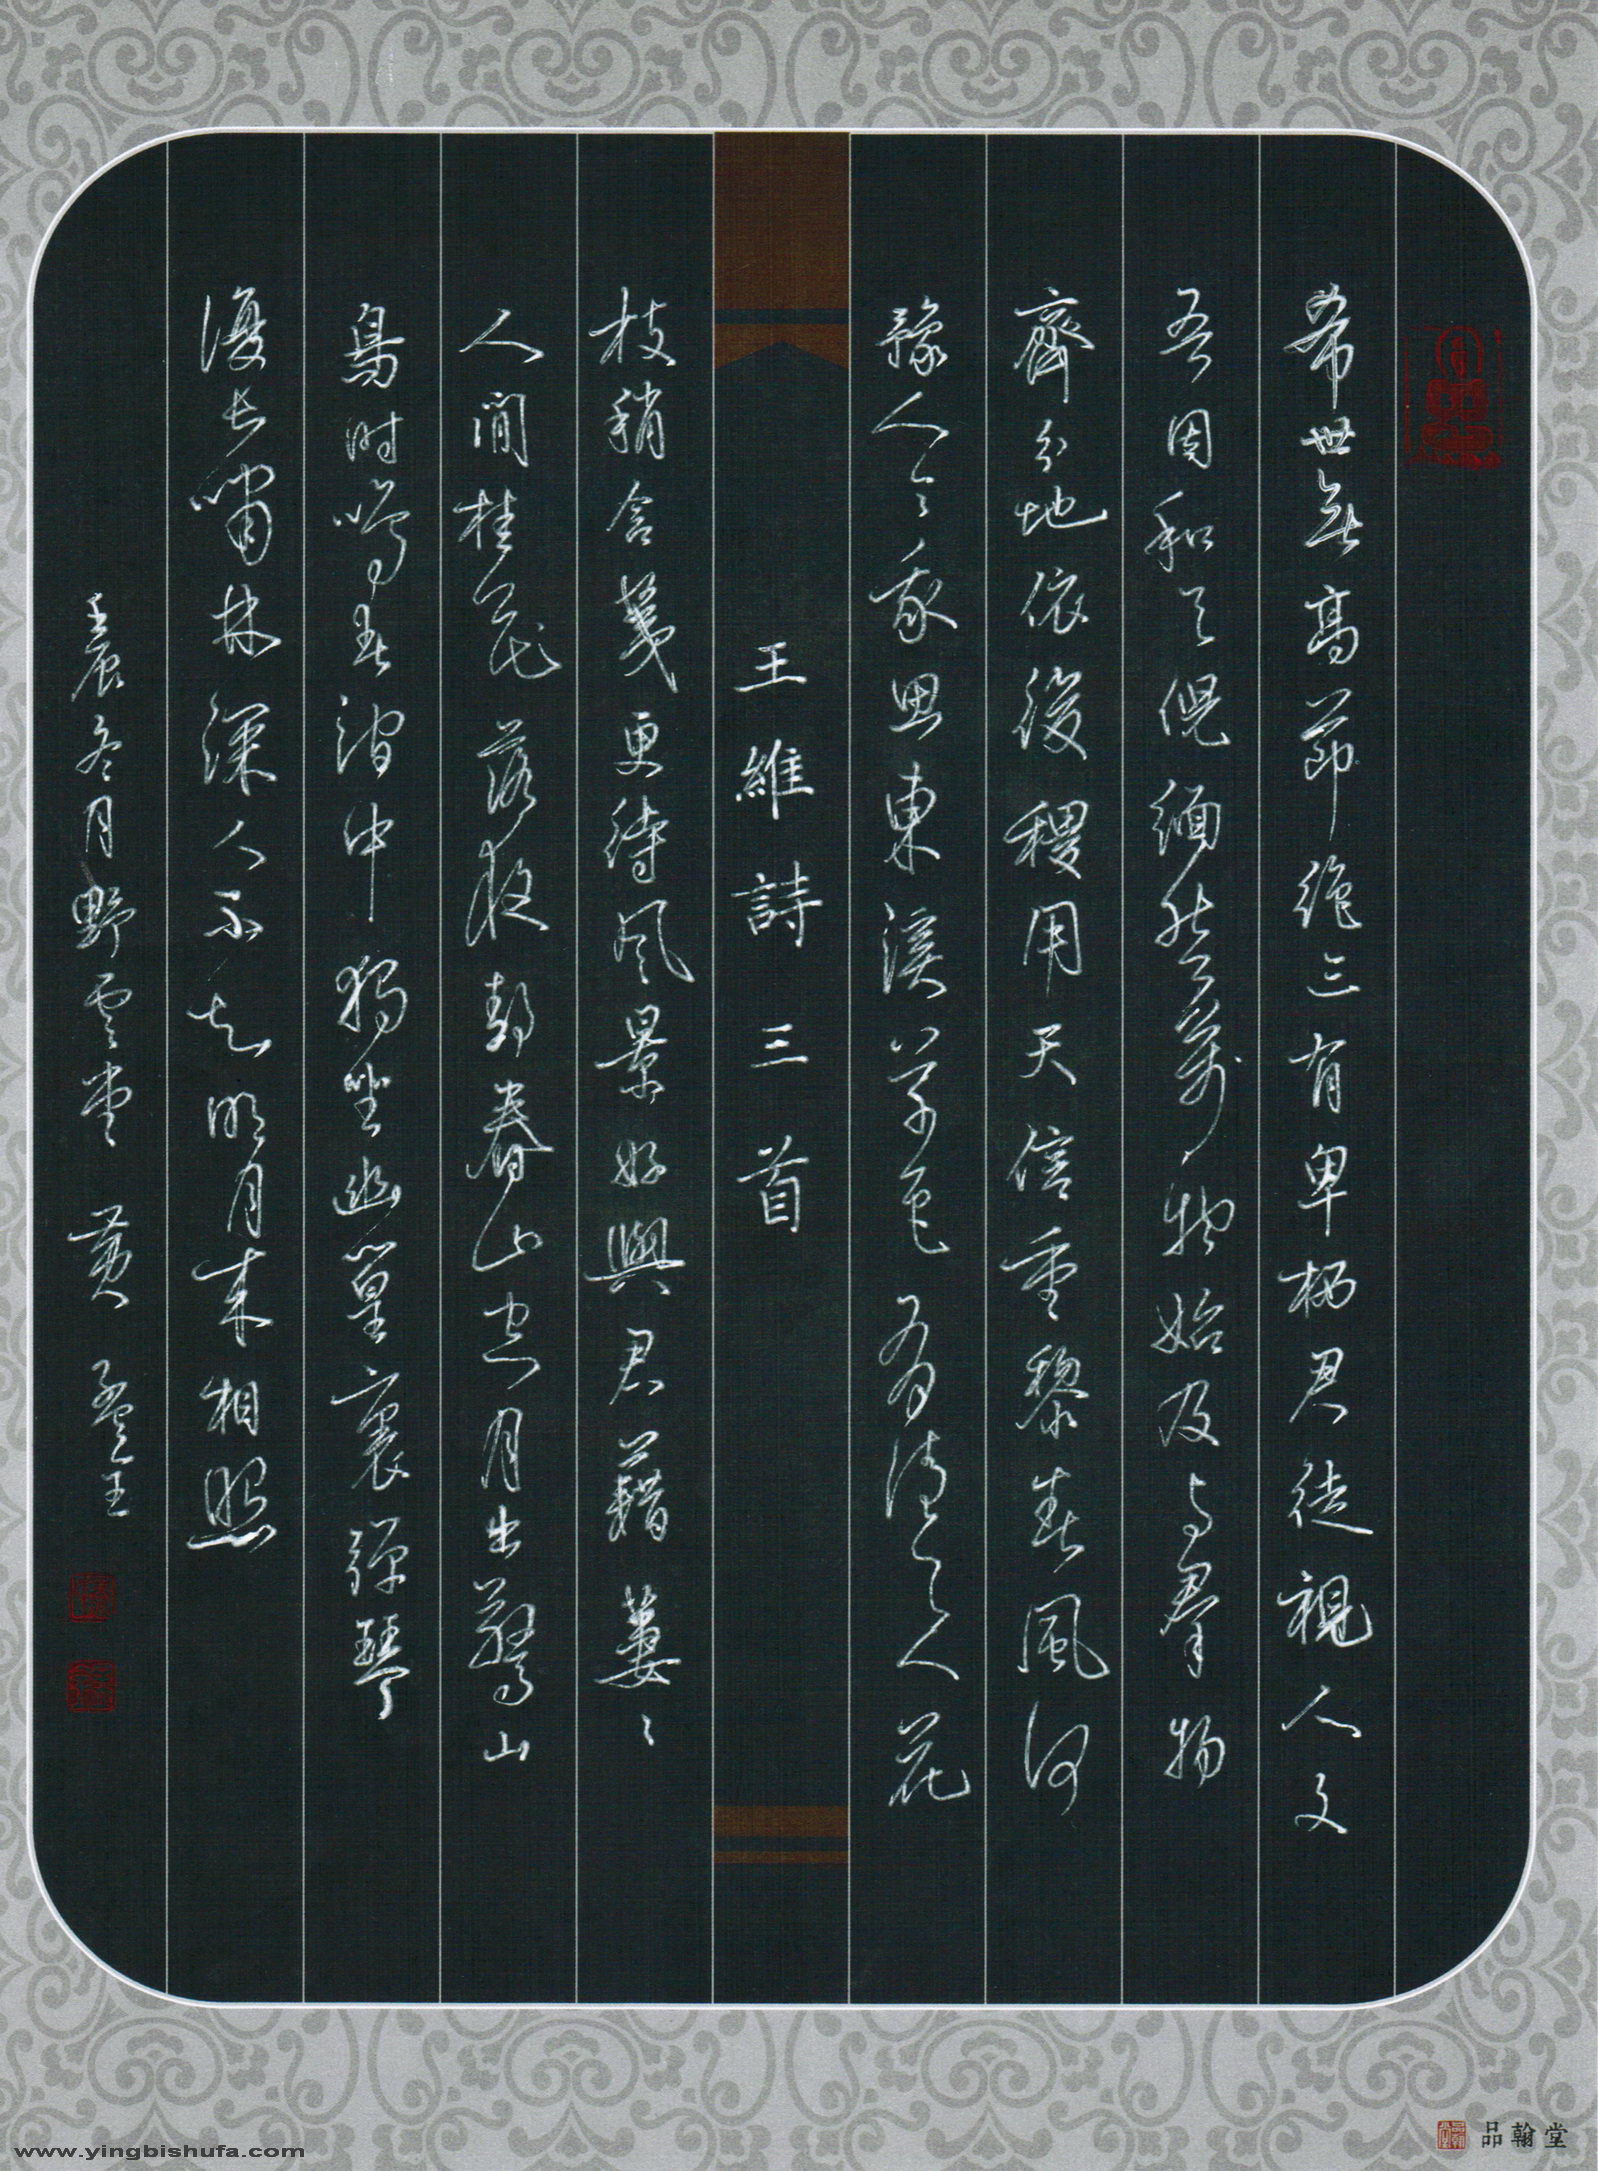 希世無高節絶迹有卑栖君徒視人文
吾固和天倪緬然萬物始及与羣物
齊分地依後稷用天信重黎春風何
豫人令我思東溪草色有佳意花
王維詩三首
枝稍含荑更待風景好與君藉萋々
人間桂花落夜静春山空月出驚山
鳥时鳴春澗中獨坐幽篁裏彈琴
復長嘯林深人不知明月来相照
壬辰冬月野雲堂 黄孟玉
www.yingbishufa.com
品翰堂